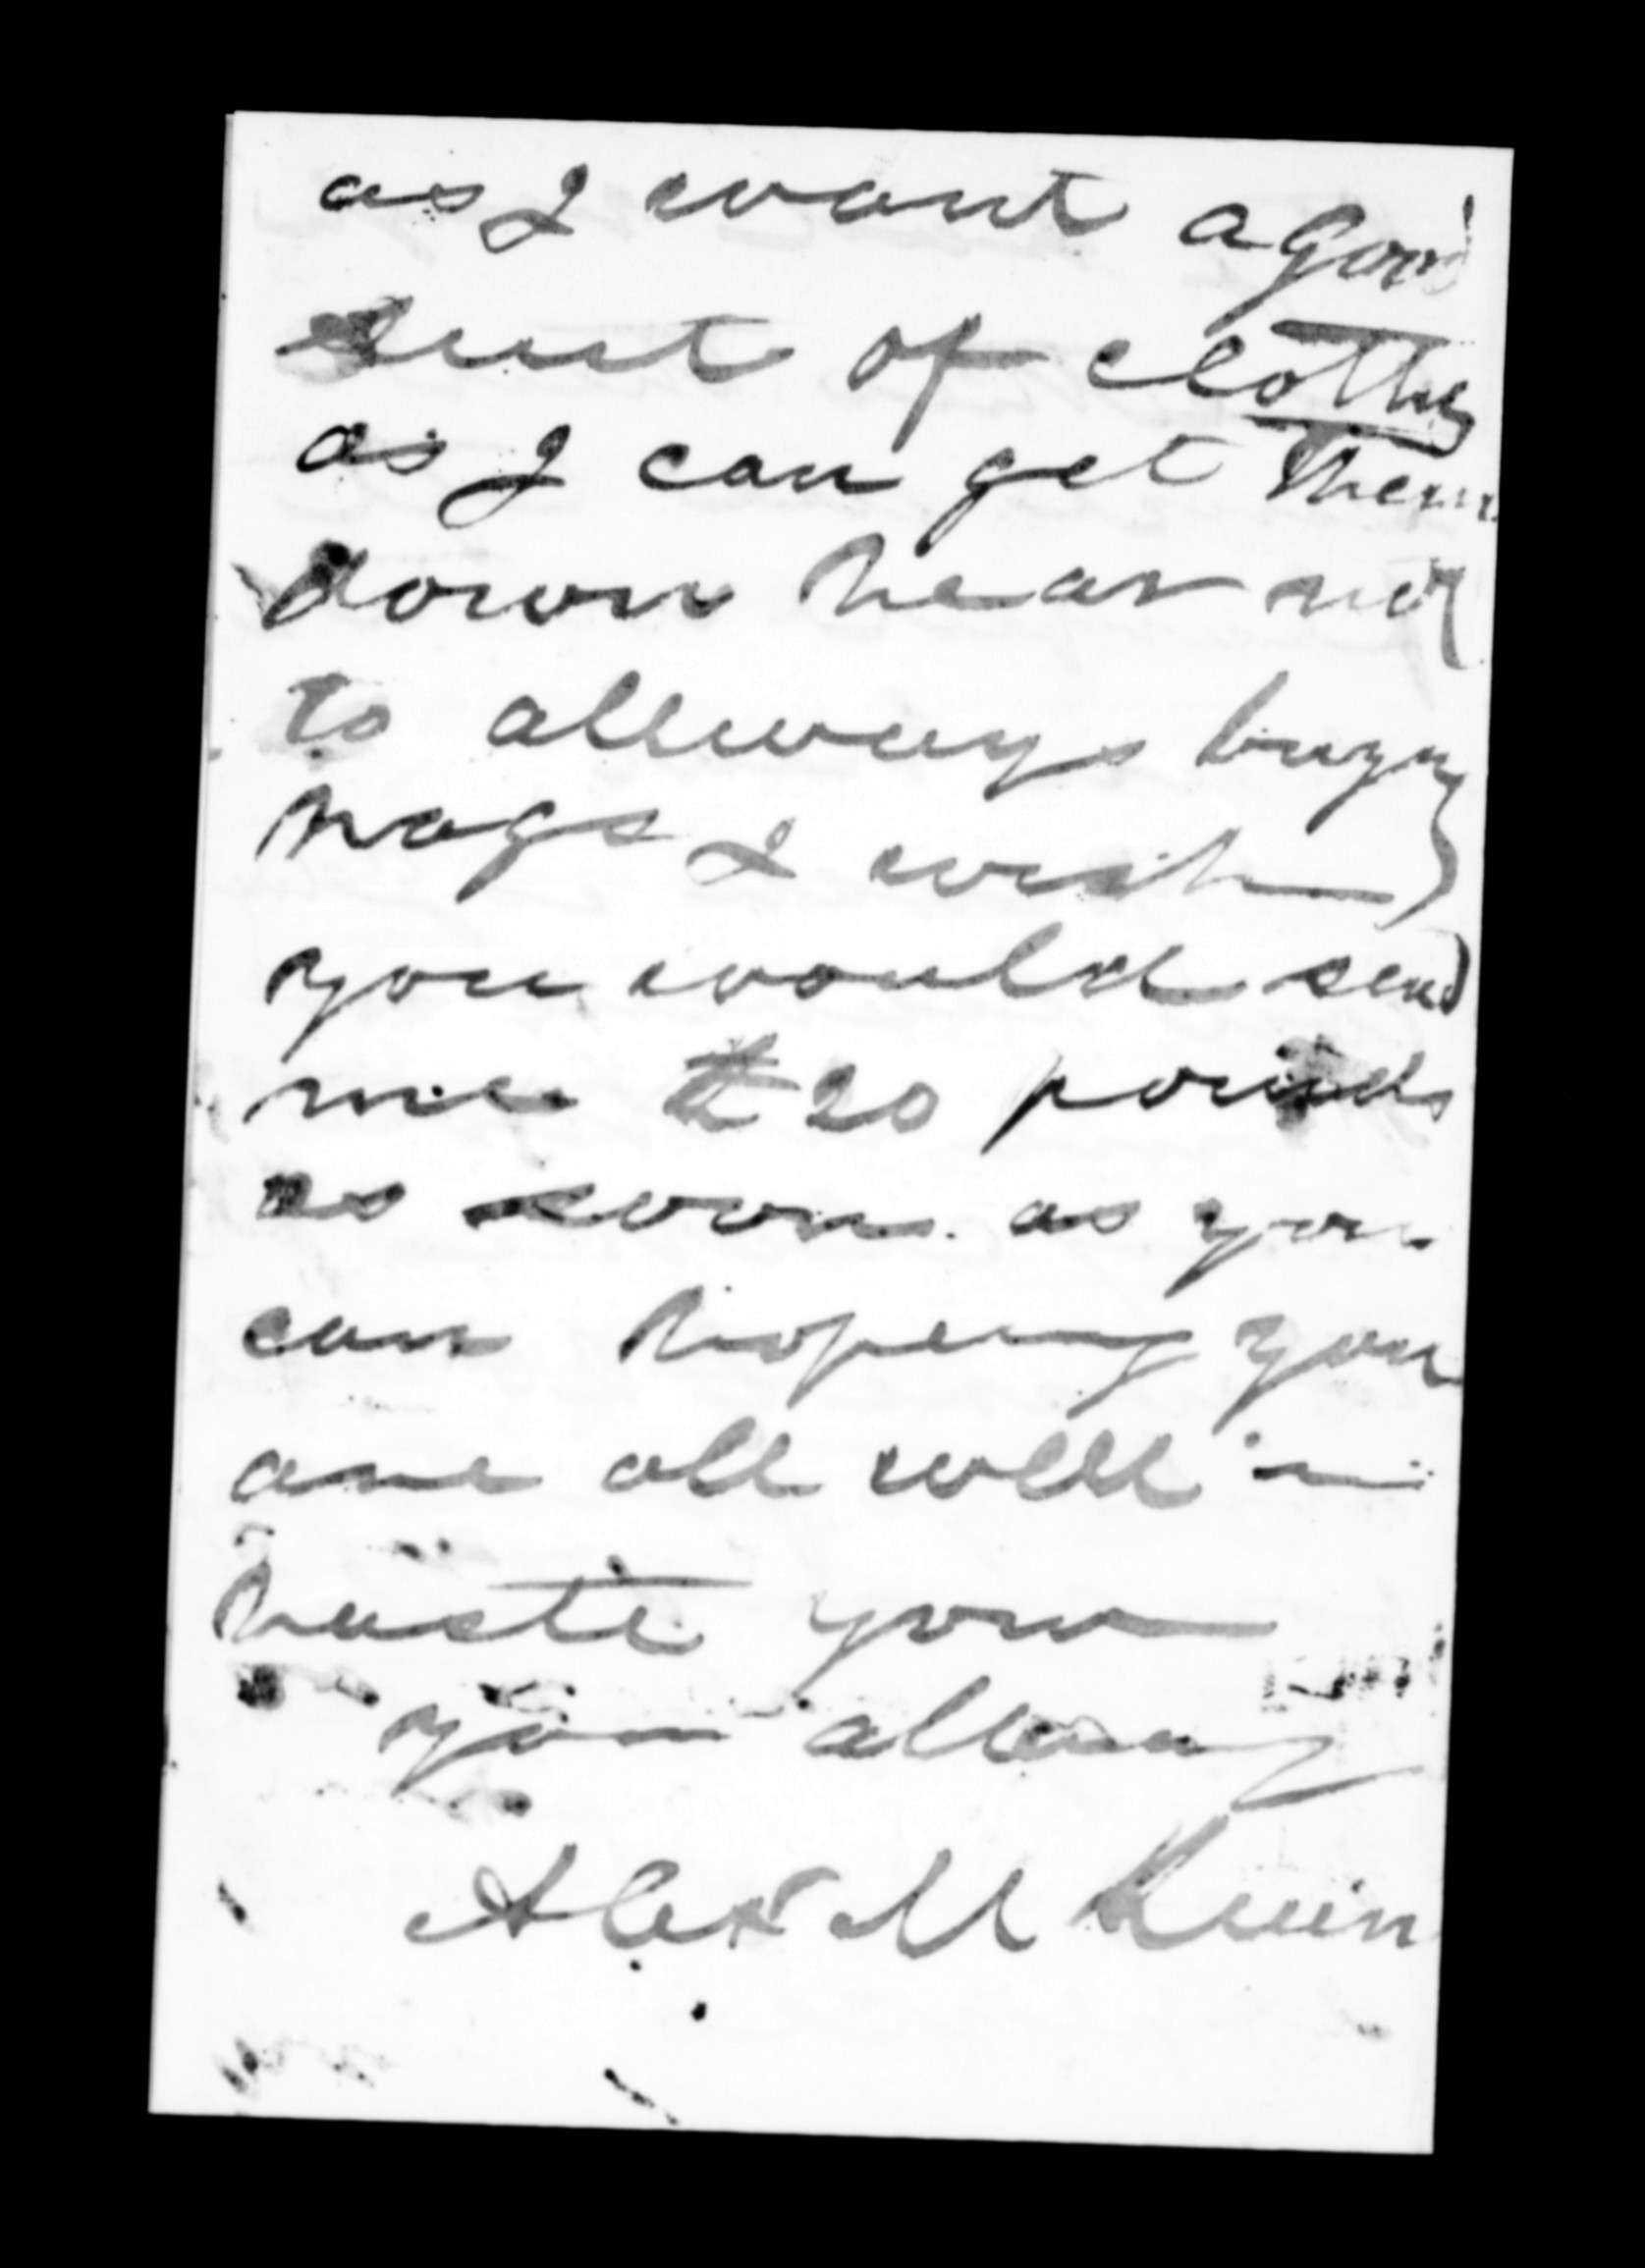 as I want a good
suit of cloths
as I can get them
down hear not
to allways buying
rags I wish
you would send
me £20 pounds
as soon as you
can hopeing you
are all well in
haste your
your allway
Alex M